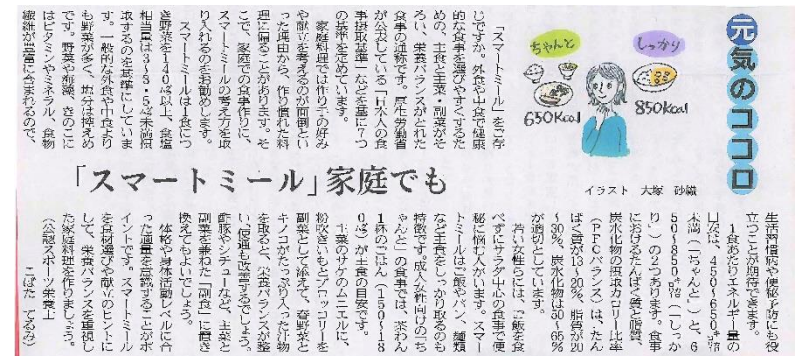 元気のココロ
ちゃんと
しっかり
650Kcal
850Kcal
イラスト 大塚 砂織
「スマートミール」家庭でも
「スマートミール」をご存
じですか。外食や中食で健康
的な食事を選びやすくするた
めの、主食と主菜・副菜がそ
ろい、栄養バランスがとれた
食事の通称です。厚生労働省
が公表している「日本人の食
事摂取基準」などを基に7つ
の基準を定めています。
家庭料理では作り手の好み
や献立を考えるのが面倒とい
った理由から、作り慣れた料
理に偏ることがあります。そ
こで、家庭での食事作りに、
スマートミールの考え方を取
り入れるのをお勧めします。
スマートミールは1食につ
き野菜を140㌘以上、食塩
相当量は3～3・5㌘未満摂
取するのを基準にしていま
す。一般的な外食や中食より
も野菜が多く、塩分は控えめ
です。野菜や海藻、きのこに
はビタミンやミネラル、食物
繊維が豊富に含まれるので、
生活習慣病や便秘予防にも役
立つことが期待できます。
1食あたりエネルギー量の
目安は、450～650㌔㌍
未満(「ちゃんと」)と、6
50～850㌔㌍(「しっか
り」)の2つあります。食事
におけるたんぱく質と脂質、
炭水化物の摂取カロリー比率
(PFCバランス)は、たん
ぱく質が13～20%、脂質が20
～30%、炭水化物は50～65%
が適切としています。
若い女性らには、ご飯を食
べずにサラダ中心の食事で便
秘に悩む人がいます。スマー
トミールはご飯やパン、麺類
など主食をしっかり取るのも
特徴です。成人女性向けの「ち
ゃんと」の食事では、茶わん
1杯のごはん(150～18
0㌘)が主食の目安です。
主菜のサケのムニエルに、
粉吹きいもとブロッコリーを
副菜として添えて、春野菜と
キノコがたっぷり入った汁物
を取ると、栄養バランスが整
い、便通も改善するでしょう。
酢豚やシチューなど、主菜と
副菜を兼ねた「副食」に置き
換えてもよいでしょう。
体格や身体活動レベルに合
った適量を意識することがポ
イントです。スマートミール
を食材選びや献立のヒントに
して、栄養バランスを重視し
た家庭料理を作りましょう。
(公認スポーツ栄養士
こばた てるみ)